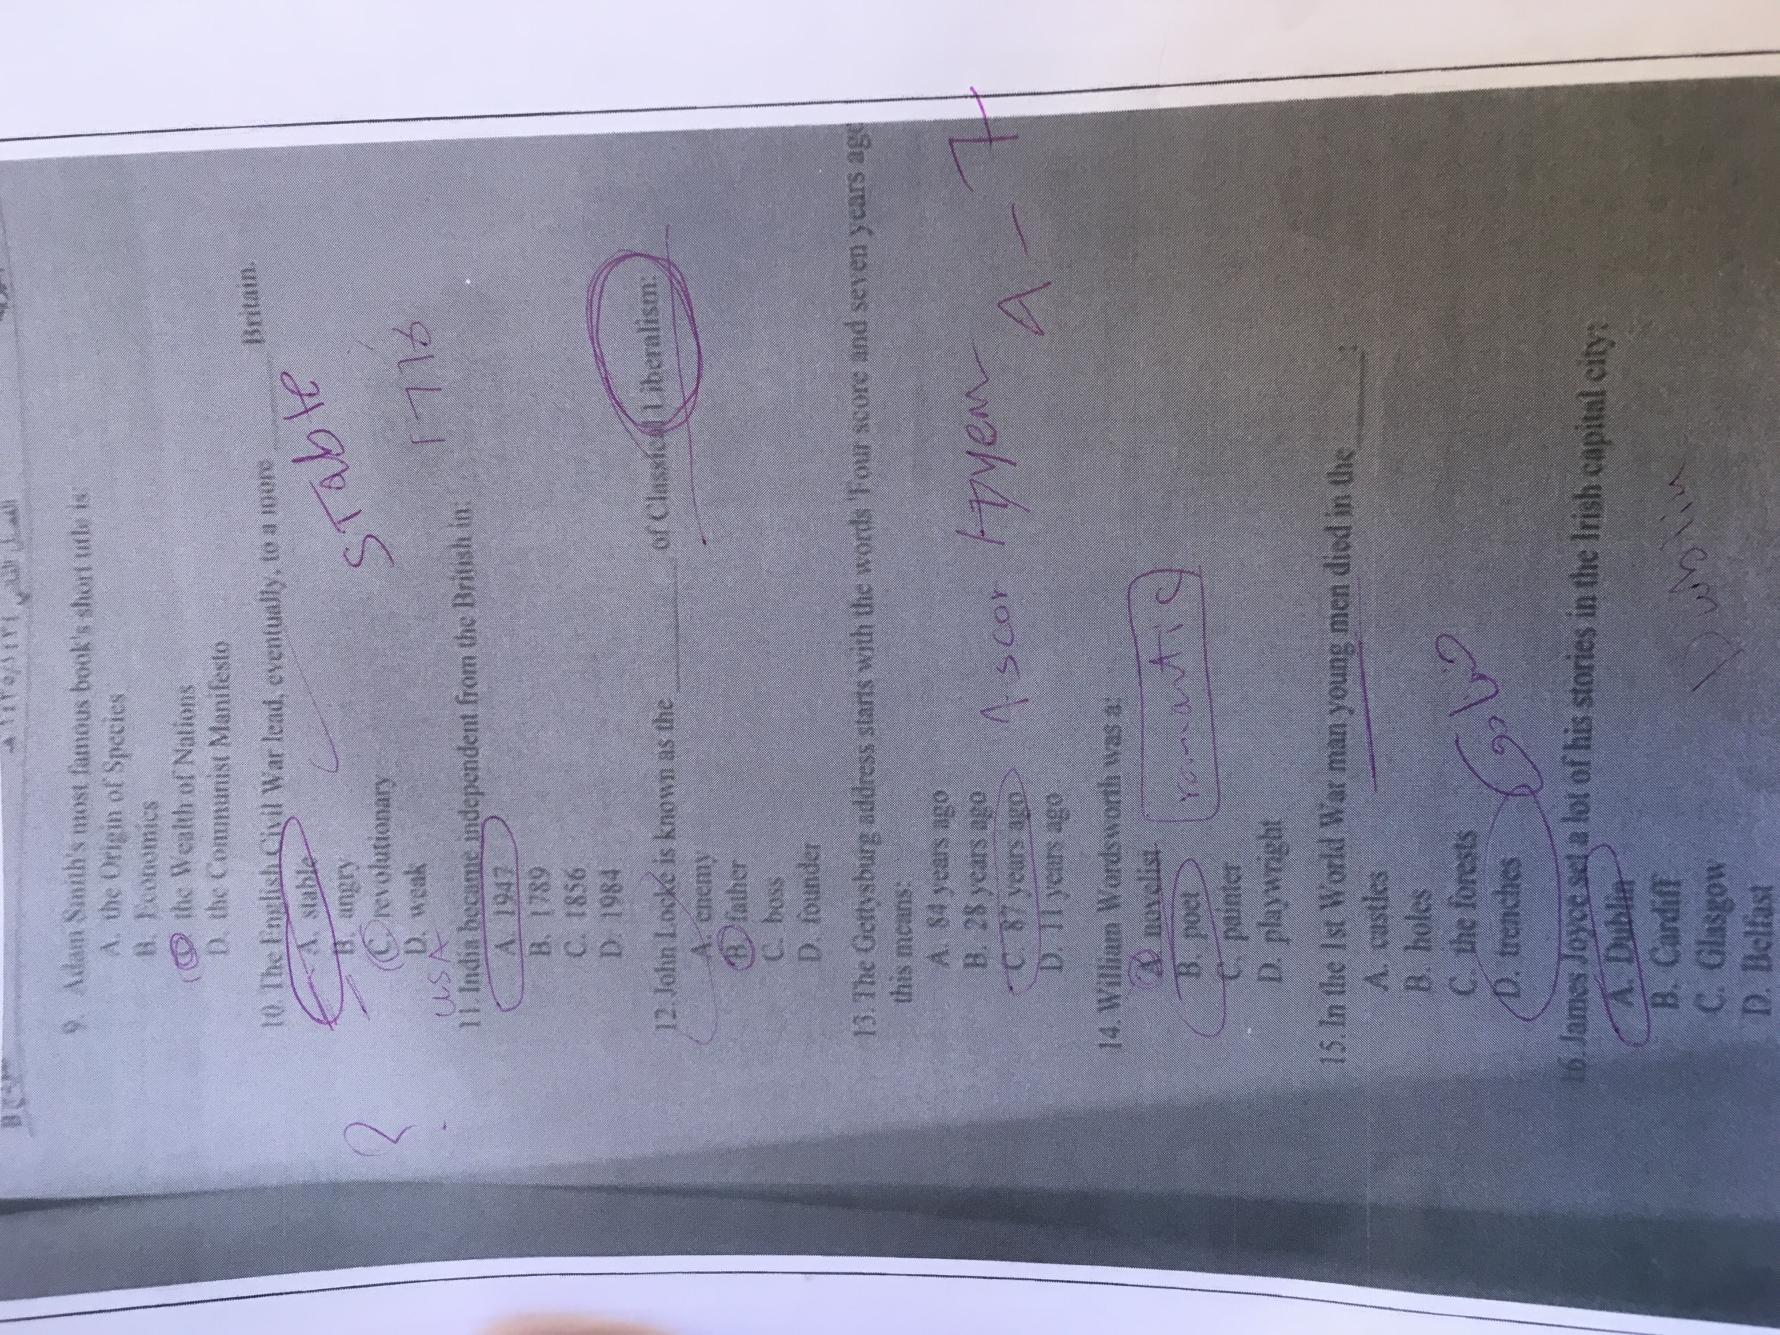 9. Adam Smith's most famous book's short title is:
A. the Origin of Species
B. Economics
C. the Wealth of Nations
D. the Communist Manifesto
10. The English Civil War lead, eventually, to a more ______ Britain.
A. stable
STable
B. angry
C. revolutionary
D. weak
USA
1776
11. India became independent from the British in:
A. 1947
B. 1789
C. 1856
D. 1984
12. John Locke is known as the ______ of Classical Liberalism:
A. enemy
B. father
C. boss
D. founder
13. The Gettysburg address starts with the words 'Four score and seven years ago
this means:
A. 84 years ago
B. 28 years ago
C. 87 years ago
D. 11 years ago
14. William Wordsworth was a:
A. novelist
romantic
B. poet
C. painter
D. playwright
15. In the 1st World War many young men died in the ______:
A. castles
B. holes
C. the forests
D. trenches
16. James Joyce set a lot of his stories in the Irish capital city:
A. Dublin
B. Cardiff
C. Glasgow
D. Belfast